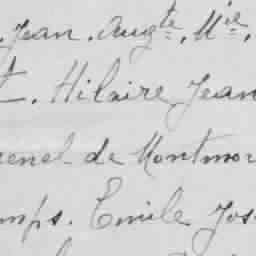 . Jean. Augte. Mie.
t. Hilaire Jean
enel de Montmor
mps. Emile Jos